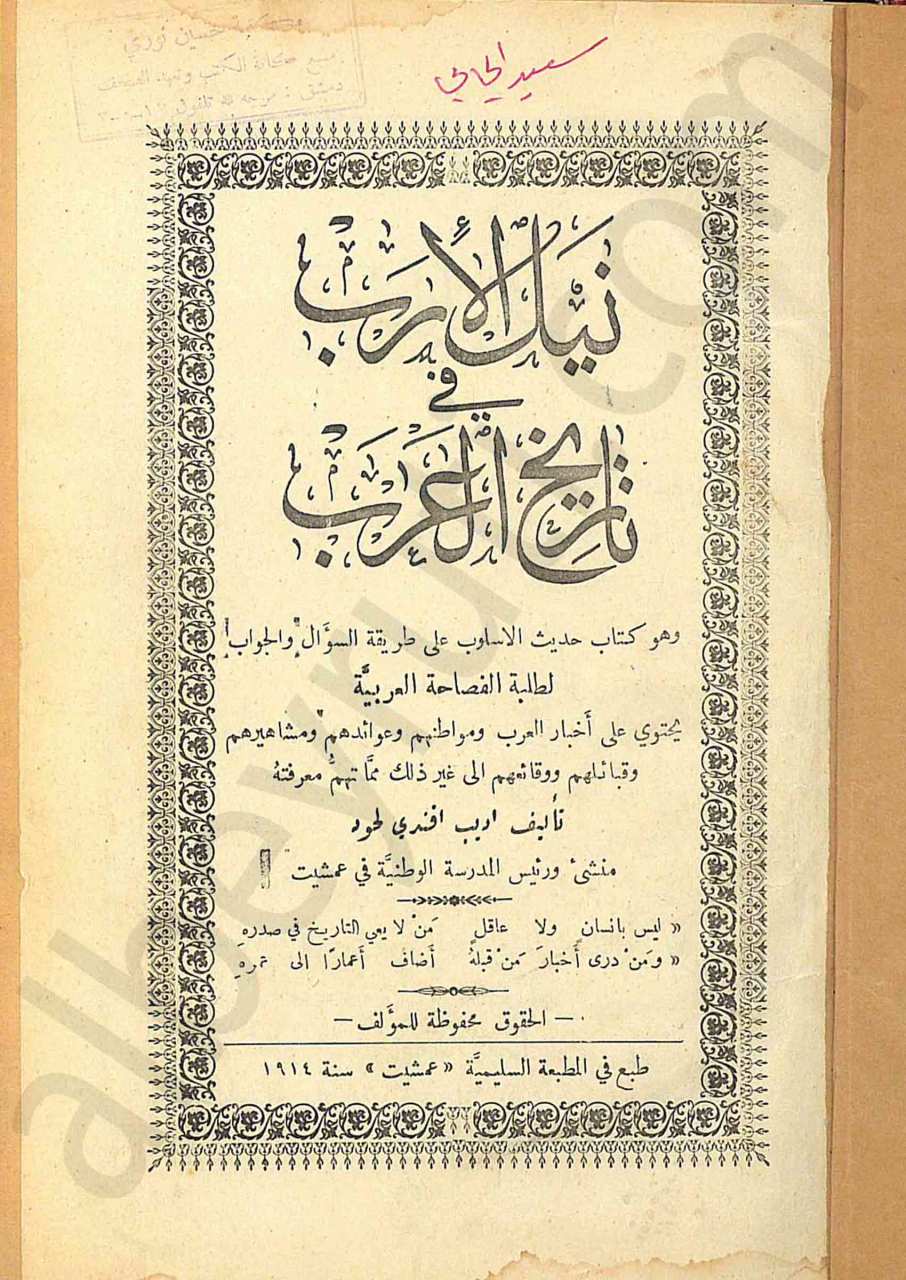 نَيلُ الأَرَب
في
تاريخ العَرَب
وهو كتاب حديث الاسلوب على طريقة السؤَال والجواب
لطلبة الفصاحة العربيَّة
يحتوي على أَخبار العرب ومواطنهم وعوائدهم ومشاهيرهم
وقبائلهم ووقائعهم الى غير ذلك ممَّا تهمُّ معرفتهُ
تأليف اديب افندي لحود
منشئ ورئيس المدرسة الوطنيَّة في عمشيت
« ليس بانسان ولا عاقل مَنْ لا يعي التاريخ في صدرهِ
« ومَنْ درى أَخبارَ مَنْ قبلهُ أَضاف أَعمارًا الى عمرهِ
— الحقوق محفوظة للمؤَلف —
طبع في المطبعة السليميَّة « عمشيت » سنة ١٩١٤
albeyru com